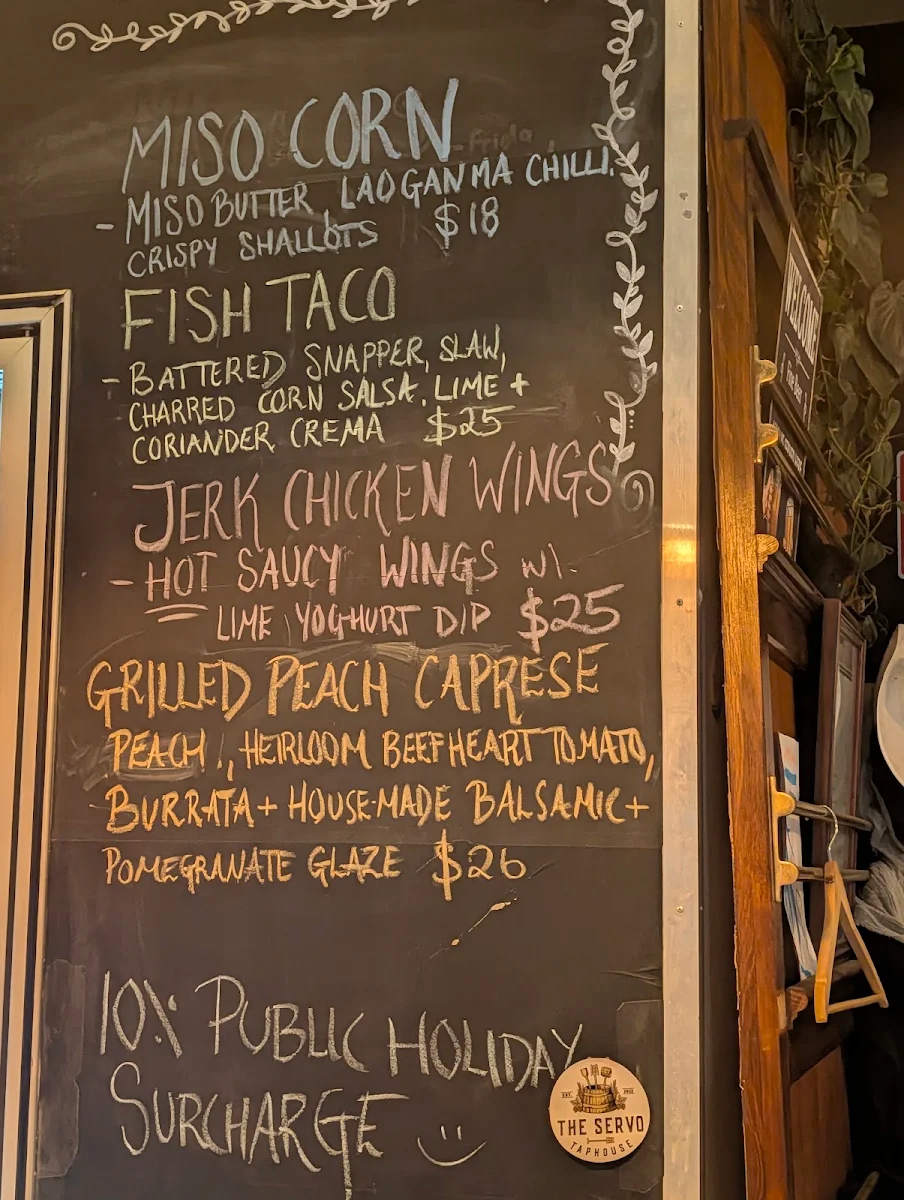 MISO CORN
- MISO BUTTER, LAOGANMA CHILLI,
CRISPY SHALLOTS $18
FISH TACO
- BATTERED SNAPPER, SLAW,
CHARRED CORN SALSA, LIME +
CORIANDER CREMA $25
JERK CHICKEN WINGS
- HOT SAUCY WINGS w/.
LIME YOGHURT DIP $25
GRILLED PEACH CAPRESE
PEACH, HEIRLOOM BEEFHEART TOMATO,
BURRATA + HOUSE-MADE BALSAMIC +
POMEGRANATE GLAZE $26
10% PUBLIC HOLIDAY
SURCHARGE
THE SERVO
TAPHOUSE
WELCOME